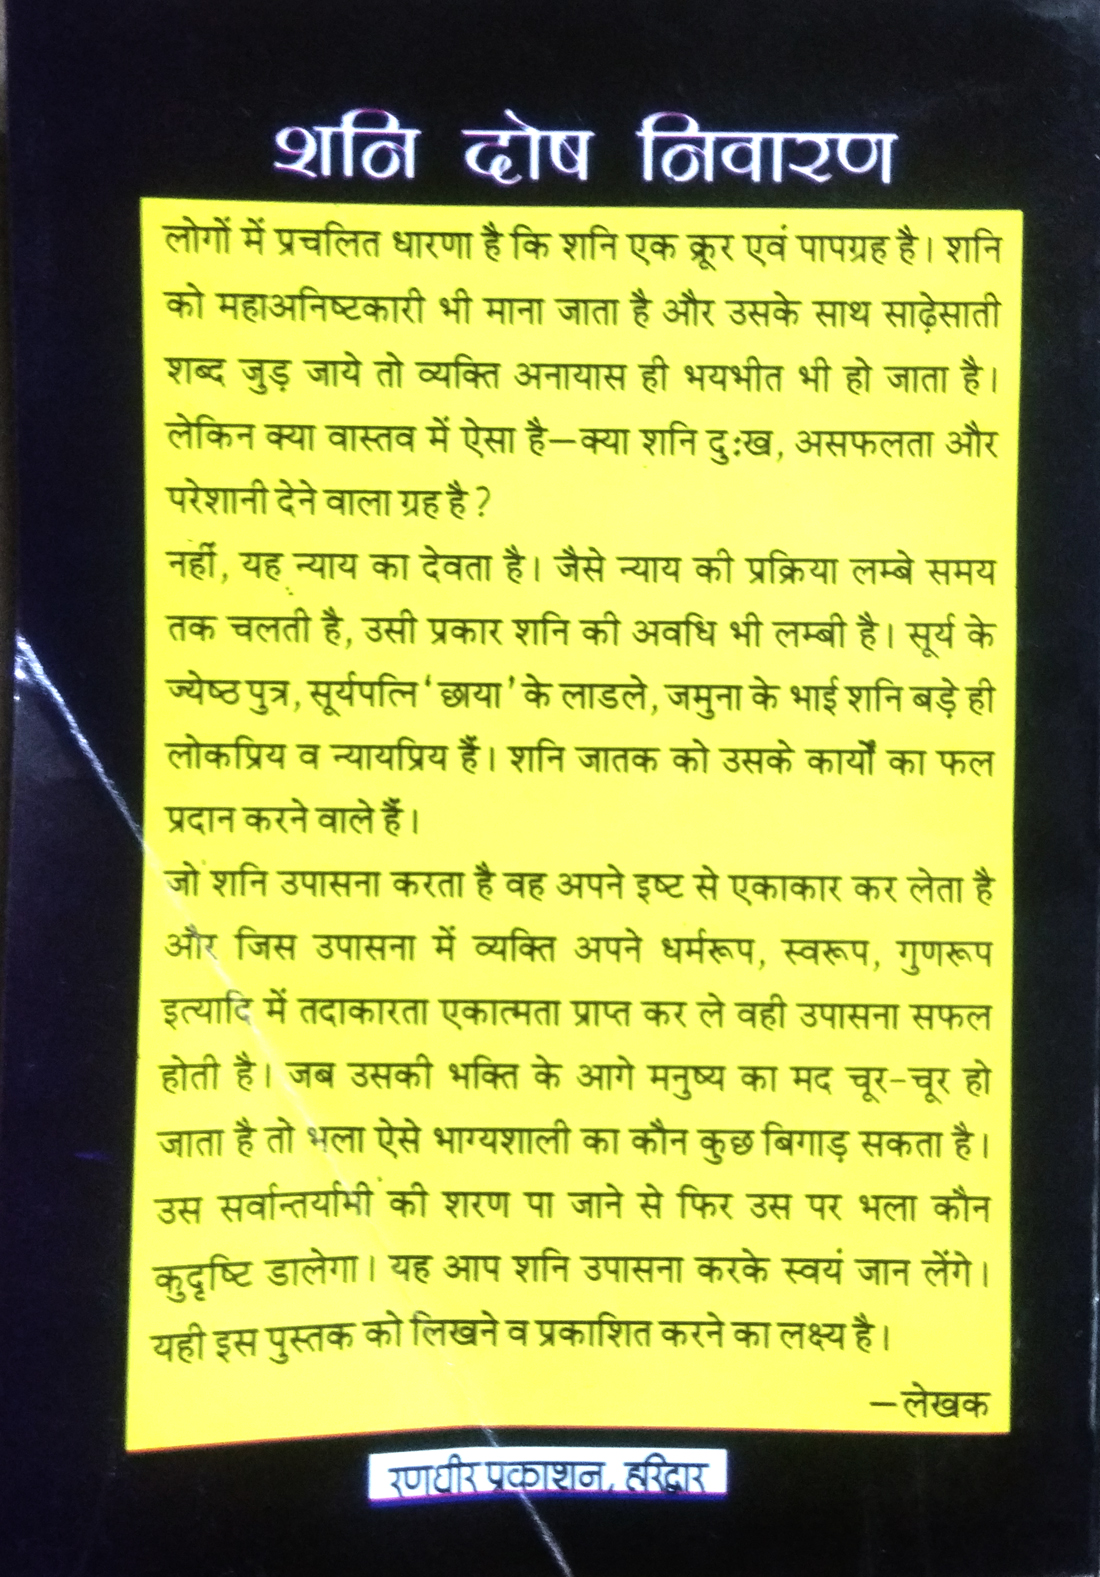 शनि दोष निवारण
लोगों में प्रचलित धारणा है कि शनि एक क्रूर एवं पापग्रह है। शनि
को महाअनिष्टकारी भी माना जाता है और उसके साथ साढ़ेसाती
शब्द जुड़ जाये तो व्यक्ति अनायास ही भयभीत भी हो जाता है।
लेकिन क्या वास्तव में ऐसा है—क्या शनि दुःख, असफलता और
परेशानी देने वाला ग्रह है ?
नहीं, यह न्याय का देवता है। जैसे न्याय की प्रक्रिया लम्बे समय
तक चलती है, उसी प्रकार शनि की अवधि भी लम्बी है। सूर्य के
ज्येष्ठ पुत्र, सूर्यपत्नि ‘छाया’ के लाडले, जमुना के भाई शनि बड़े ही
लोकप्रिय व न्यायप्रिय हैं। शनि जातक को उसके कार्यों का फल
प्रदान करने वाले हैं।
जो शनि उपासना करता है वह अपने इष्ट से एकाकार कर लेता है
और जिस उपासना में व्यक्ति अपने धर्मरूप, स्वरूप, गुणरूप
इत्यादि में तदाकारता एकात्मता प्राप्त कर ले वही उपासना सफल
होती है। जब उसकी भक्ति के आगे मनुष्य का मद चूर-चूर हो
जाता है तो भला ऐसे भाग्यशाली का कौन कुछ बिगाड़ सकता है।
उस सर्वान्तर्यामी की शरण पा जाने से फिर उस पर भला कौन
कुदृष्टि डालेगा। यह आप शनि उपासना करके स्वयं जान लेंगे।
यही इस पुस्तक को लिखने व प्रकाशित करने का लक्ष्य है।
—लेखक
रणधीर प्रकाशन, हरिद्वार